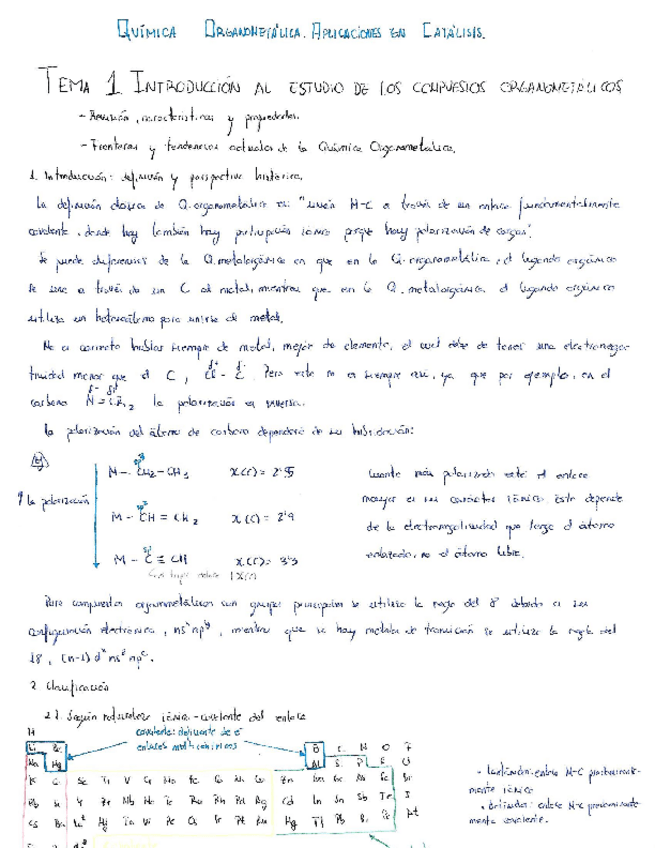 QUÍMICA ORGANOMETÁLICA. APLICACIONES EN CATÁLISIS.
TEMA 1 INTRODUCCIÓN AL ESTUDIO DE LOS COMPUESTOS ORGANOMETÁLICOS
- características y propiedades.
- Fronteras y tendencias actuales de la Química Organometálica.
1. Introducción: definición y perspectiva histórica.
La definición clásica de Q. organometálica es: "unión M-C a través de un enlace fundamentalmente
covalente, donde hay también hay participación iónica porque hay polarización de cargas".
Se puede diferenciar de la Q. metalorgánica en que en la Q. organometálica, el ligando orgánico
se une a través de un C al metal, mientras que en la Q. metalorgánica el ligando orgánico
utiliza un heteroátomo para unirse al metal.
No es correcto hablar siempre de metal, mejor de elemento, el cual debe de tener una electronega-
tividad menor que el C, . Pero esto no es siempre así, ya que por ejemplo, en el
carbeno la polarización es inversa.
La polarización del átomo de carbono dependerá de su hibridación:
Ej
↑ la polarización
sp³
M - CH₂ - CH₃ χ(C) = 2'55
sp²
M - CH = CH₂ χ(C) = 2'9
sp
M - C ≡ CH χ(C) = 3'3
Cuanto más polarizado esté el enlace
mayor es su carácter iónico. Esto depende
de la electronegatividad que tenga el átomo
enlazado, no el átomo libre.
Para compuestos organometálicos con grupos principales se utiliza la regla del 8 debido a su
configuración electrónica, mientras que si hay metales de transición se utiliza la regla del
18,
2. Clasificación
2.1. Según naturaleza iónico-covalente del enlace
covalente: deficiente de e⁻
enlaces multicéntricos
H
Li Be B C N O F
Na Mg Al S P
K Ca Sc Ti V Cr Mn Fe Co Ni Cu Zn Ga Ge As Se Br
Rb Sr Y Zr Nb Mo Tc Ru Rh Pd Ag Cd In Sn Sb Te I
Cs Ba Hf Ta W Re Os Ir Pt Au Hg Tl Pb Bi At
enlace M-C predominante-
mente iónico
enlace M-C predominante-
mente covalente.